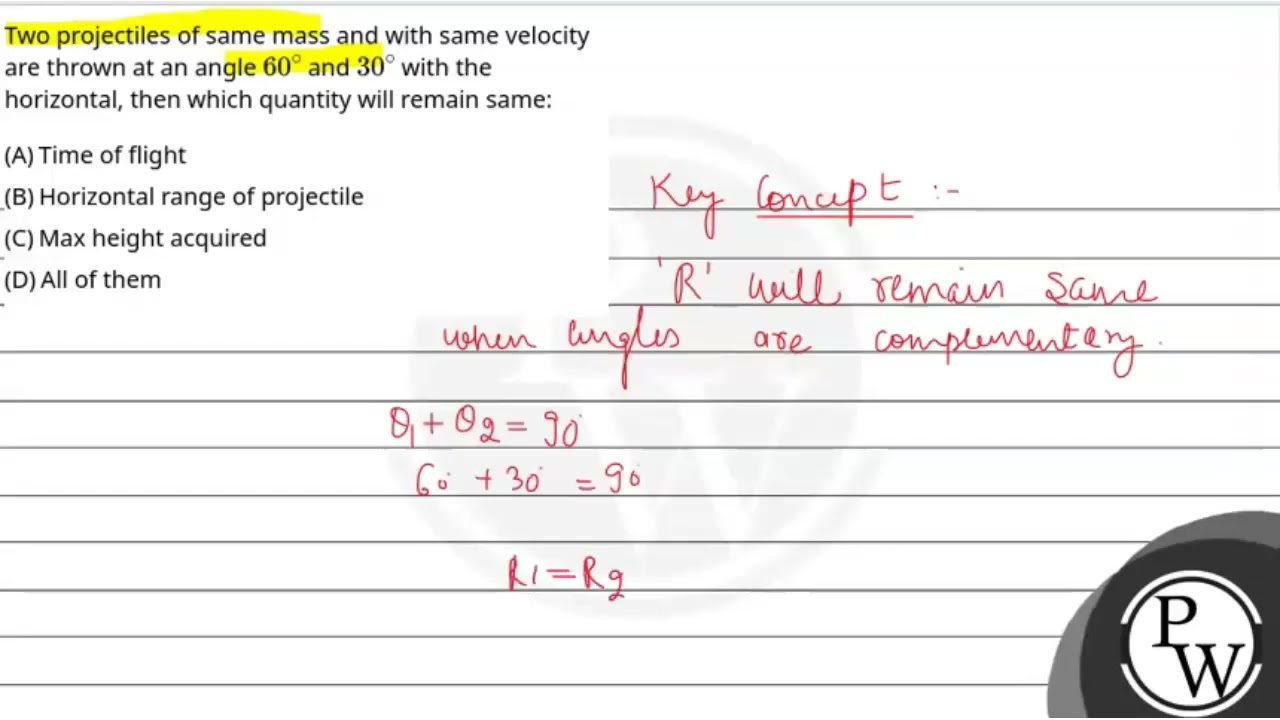 Two projectiles of same mass and with same velocity
are thrown at an angle 60° and 30° with the
horizontal, then which quantity will remain same:
(A) Time of flight
(B) Horizontal range of projectile
(C) Max height acquired
(D) All of them
Key Concept :-
'R' will remain same
when angles are complementary.
θ₁ + θ₂ = 90°
60° + 30° = 90°
R1 = R2
PW